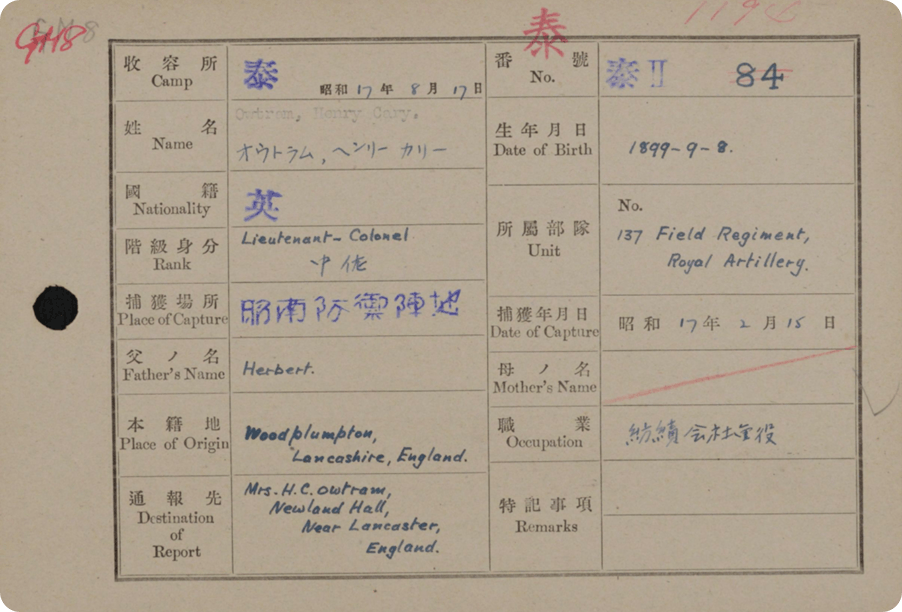 GM8
GM8
119
泰
收容所
Camp
泰
昭和17年8月17日
番號
No.
泰II 84
姓名
Name
Owtram, Henry Cary.
オウトラム,ヘンリー カリー
生年月日
Date of Birth
1899-9-8.
國籍
Nationality
英
所屬部隊
Unit
No.
137 Field Regiment,
Royal Artillery.
階級身分
Rank
Lieutenant-Colonel
中佐
捕獲場所
Place of Capture
昭南防禦陣地
捕獲年月日
Date of Capture
昭和17年2月15日
父ノ名
Father's Name
Herbert.
母ノ名
Mother's Name
本籍地
Place of Origin
Woodplumpton,
Lancashire, England.
職業
Occupation
紡績会社重役
通報先
Destination
of
Report
Mrs. H.C. Owtram,
Newland Hall,
Near Lancaster,
England.
特記事項
Remarks